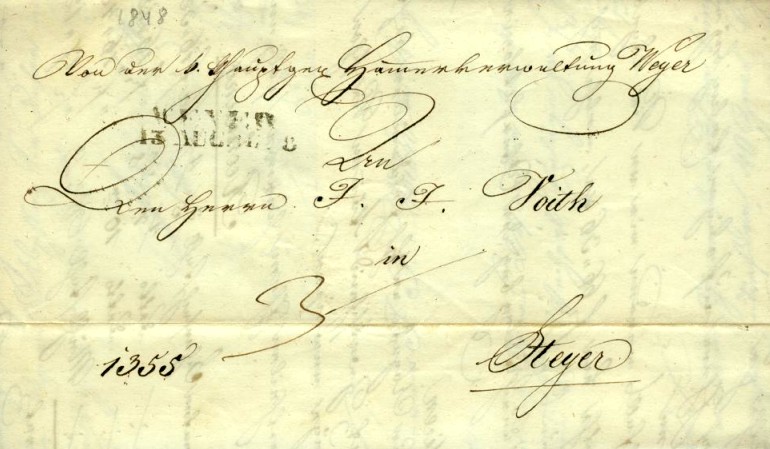 1848
Von der k. Hauptgew Hamerverwaltung Weyer
WEYER
13 AUG
An
Den Herrn J. J. Voith
in
3
1355
Steyer